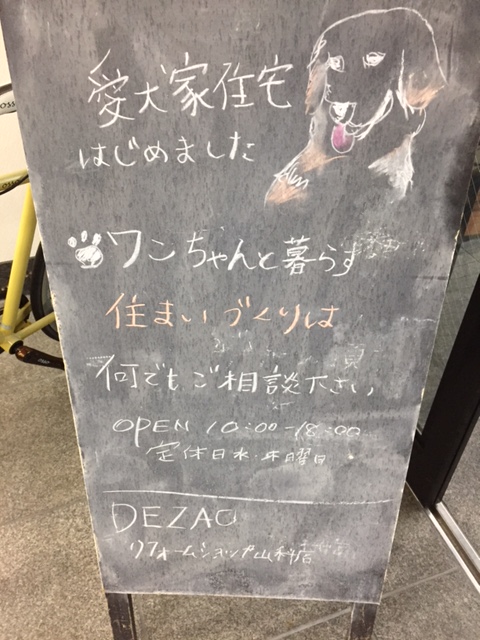 愛犬家住宅
はじめました
ワンちゃんと暮らす
住まいづくりは
何でもご相談下さい
OPEN 10:00-18:00
定休日水・木曜日
DEZAO
リフォームショップ山科店